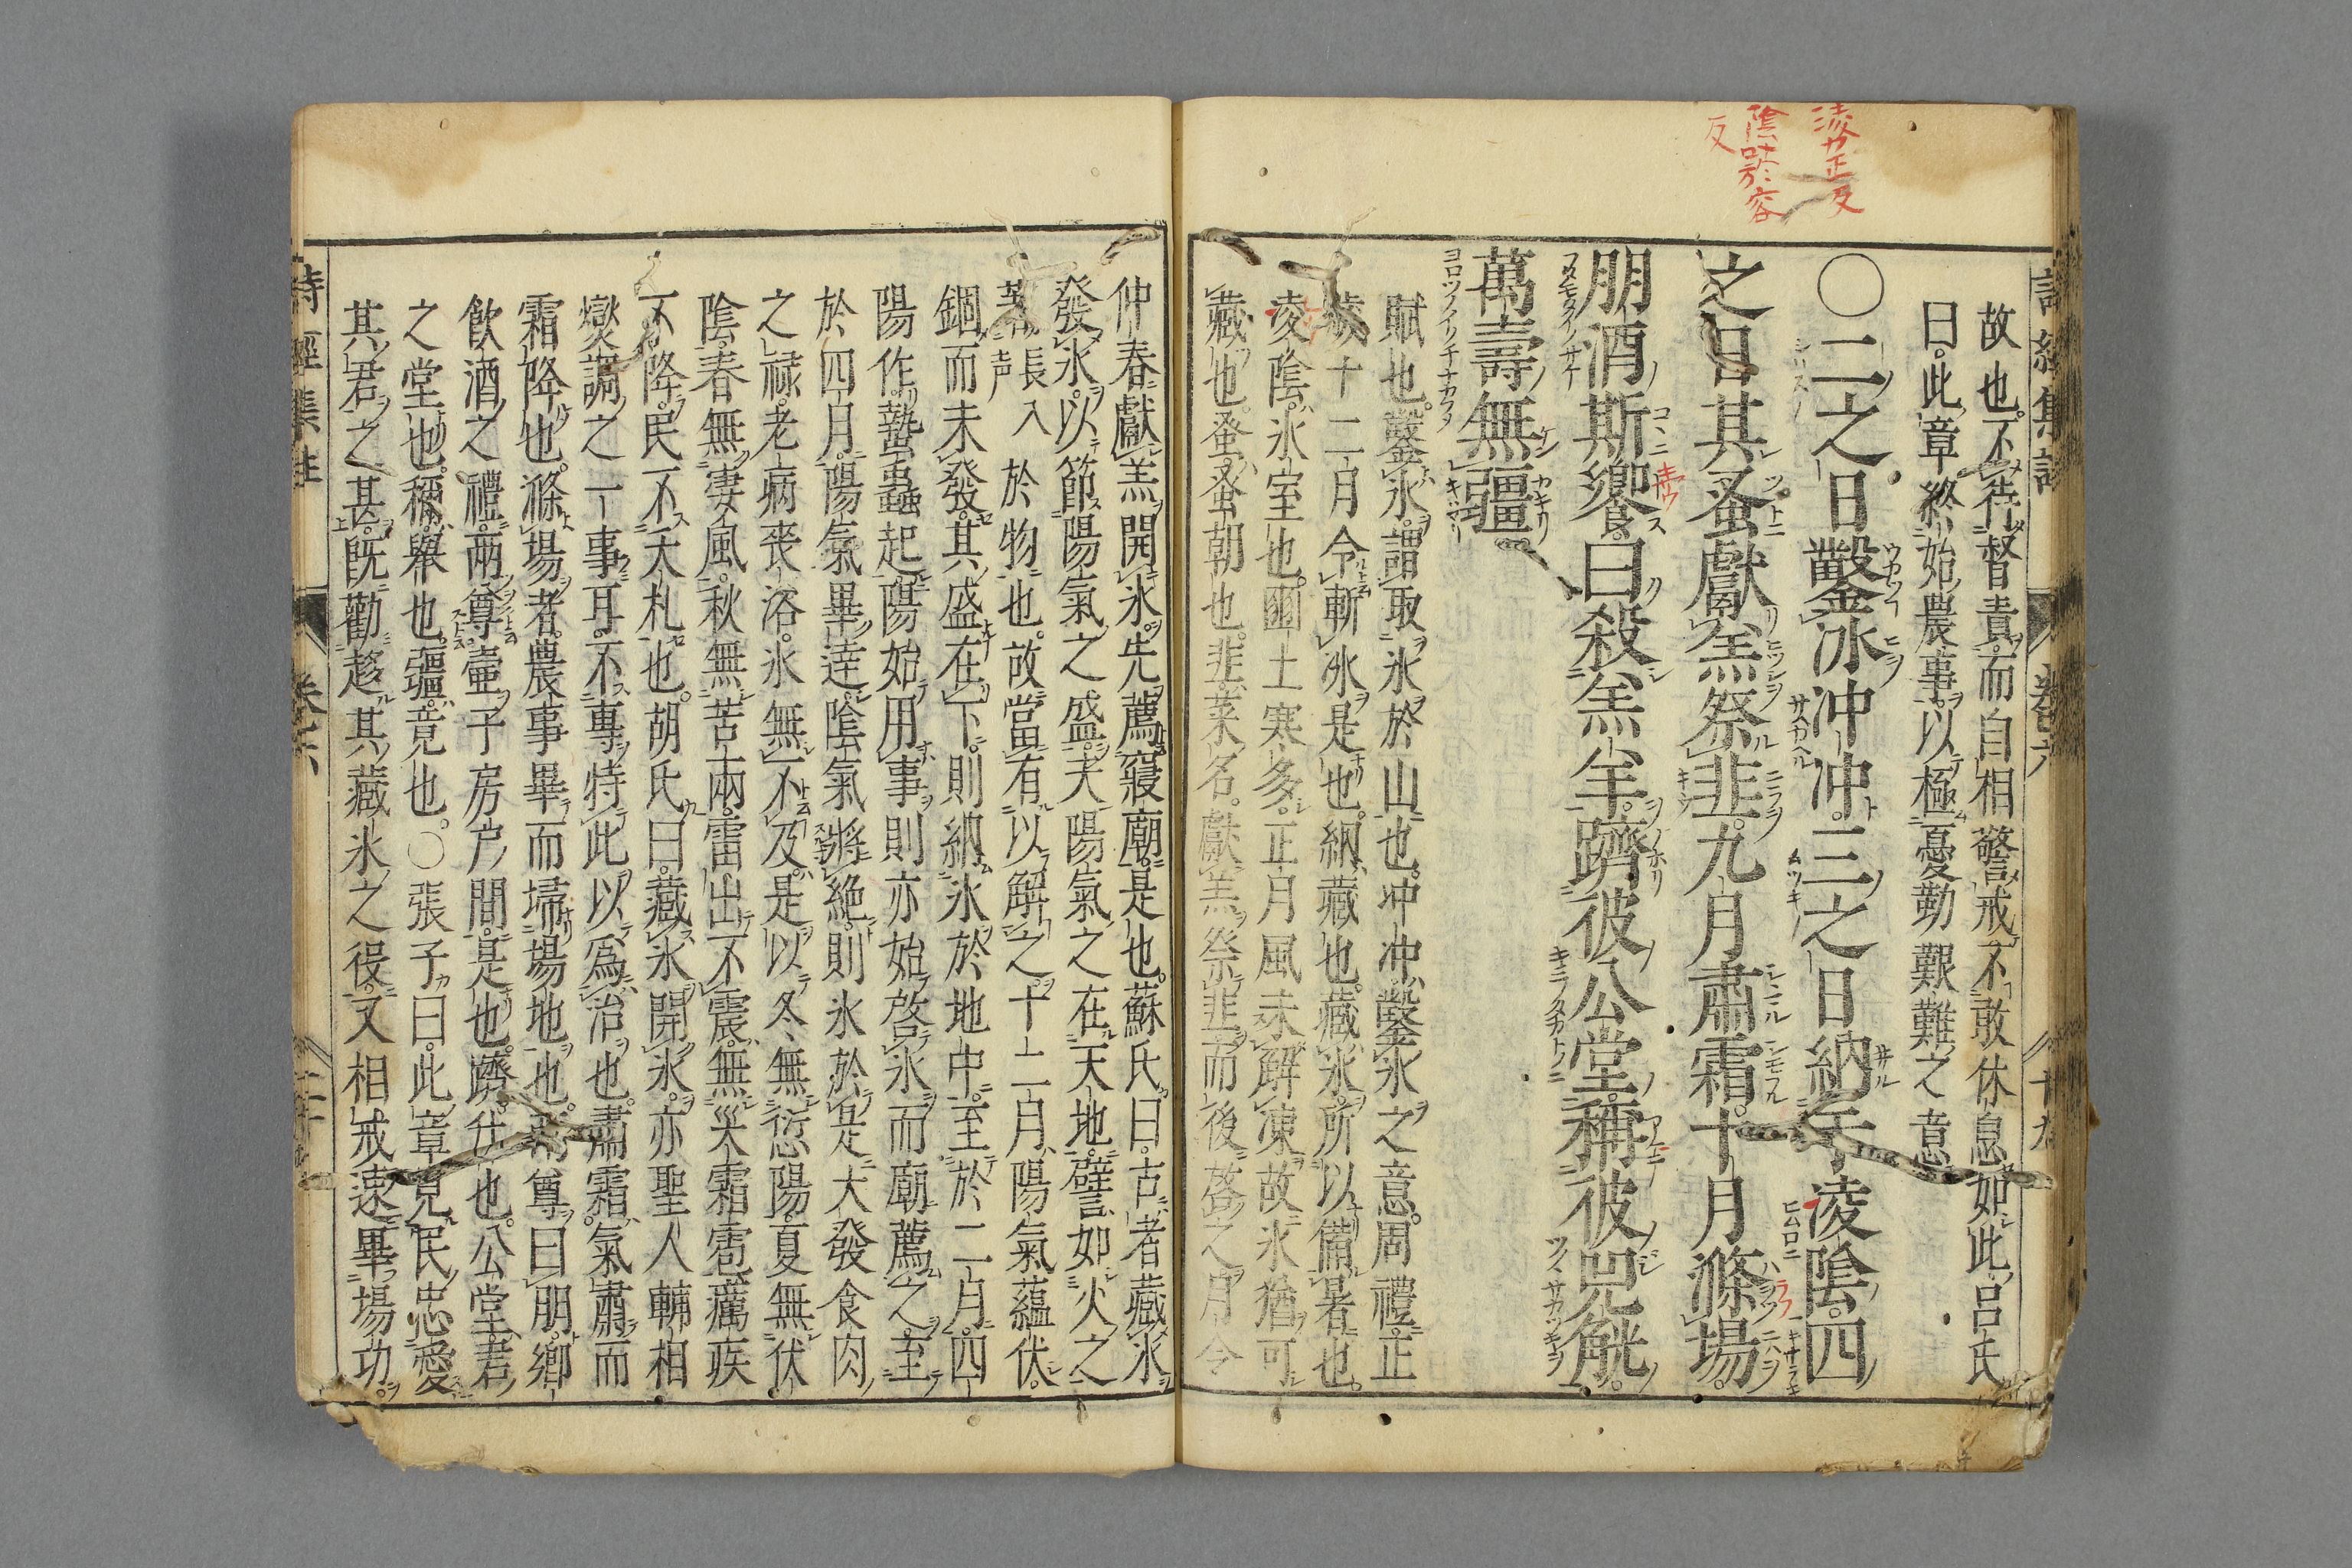 故也。不待督責。而自相警戒。不敢休息如此。呂氏
曰。此章終始農事。以極憂勤艱難之意
〇二之日鑿冰沖沖。三之日納于凌陰。四
之日其蚤獻羔祭韭。九月肅霜。十月滌場。
朋酒斯饗。曰殺羔羊。躋彼公堂。稱彼兕觥。
萬壽無疆
賦也。鑿氷。謂取氷於山也。冲冲鑿氷之意。周禮正
歲十二月令斬氷是也。納藏也。藏氷所以備暑也。
凌陰氷室也。豳土寒多。正月風未解凍。故氷猶可
藏也。蚤蚤朝也。韭菜名。獻羔祭韭而後啓之。月令
仲春獻羔開氷。先薦寢廟。是也。蘇氏曰。古者藏氷
發氷。以節陽氣之盛。夫陽氣之在天地。譬如火之
著長入声於物也。故當有以解之。十二月。陽氣蘊伏。
錮而未發。其盛在下。則納氷於地中。至於二月。四
陽作。蟄蟲起。陽始用事。則亦始啓氷而廟薦之。至
於四月。陽氣畢達。陰氣將絶。則氷於是大發。食肉
之祿。老病喪浴。氷無不及。是以冬無愆陽。夏無伏
陰。春無凄風。秋無苦雨。雷出不震。無災霜雹。癘疾
不降。民不夭札也。胡氏曰。藏氷開氷。亦聖人輔相
爕調之一事耳。不專恃此以爲治也。肅霜。氣肅而
霜降也。滌場者。農事畢而埽場地也。兩尊曰朋。鄉
飮酒之禮。兩尊壷于房戸間。是也。躋升也。公堂。君
之堂也。稱擧也。疆竟也。〇張子曰。此章見民忠愛
其君之甚。既勸趍其藏氷之役。又相戒速畢場功。
卷六
陰 於容
反